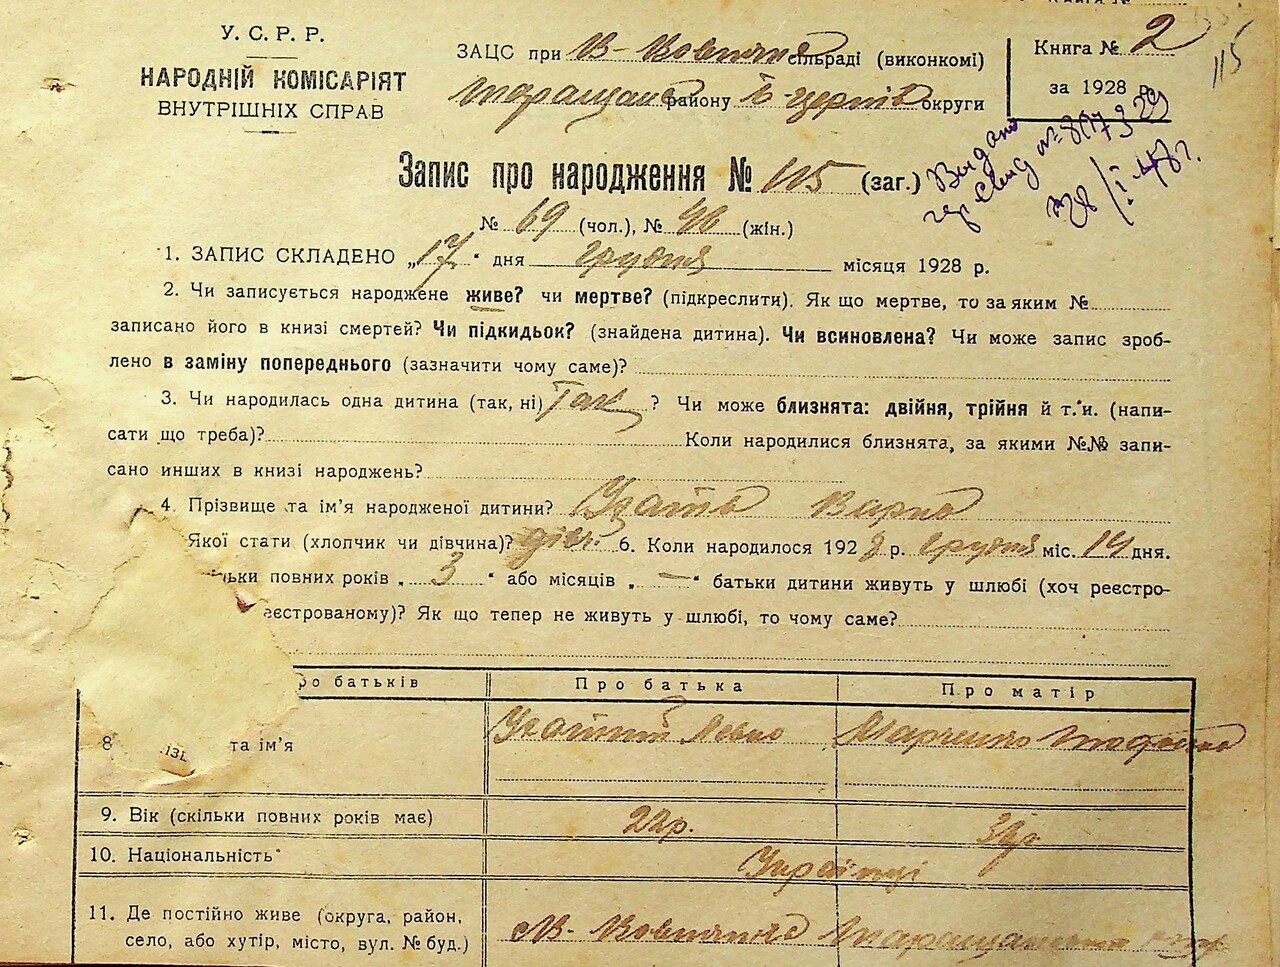 У. С. Р. Р.
НАРОДНІЙ КОМІСАРІЯТ
ВНУТРІШНІХ СПРАВ
ЗАЦС при В-Вовнянс сільраді (виконкомі)
Таращанс району Б-церків округи
Книга № 2
за 1928 р.
115
Видано
№ 807329
28/I 48 г.
Запис про народження № 115 (заг.)
№ 69 (чол.), № 46 (жін.)
1. ЗАПИС СКЛАДЕНО „17" дня грудня місяця 1928 р.
2. Чи записується народжене живе? чи мертве? (підкреслити). Як що мертве, то за яким №
записано його в книзі смертей? Чи підкидьок? (знайдена дитина). Чи всиновлена? Чи може запис зроб-
лено в заміну попереднього (зазначити чому саме)?
3. Чи народилась одна дитина (так, ні) Так ? Чи може близнята: двійня, трійня й т. и. (напи-
сати що треба)? Коли народилися близнята, за якими №№ запи-
сано инших в книзі народжень?
4. Прізвище та ім'я народженої дитини? Варка
Якої стати (хлопчик чи дівчина)? дівч. 6. Коли народилося 1928 р. грудня міс. 14 дня.
льки повних років „ 3 " або місяців „ — " батьки дитини живуть у шлюбі (хоч реєстро-
еєстрованому)? Як що тепер не живуть у шлюбі, то чому саме?
ро батьків Про батька Про матір
8 ізв та ім'я Левко Марченко
9. Вік (скільки повних років має) 22р.
10. Національність Українці
11. Де постійно живе (округа, район,
село, або хутір, місто, вул. № буд.) В-Вовнянс Таращанського